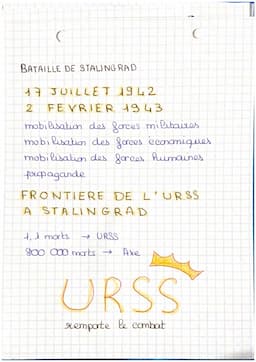 BATAILLE DE STALINGRAD
17 JUILLET 1942
2 FEVRIER 1943
mobilisation des forces militaires
mobilisation des forces économiques
mobilisation des forces humaines
propagande
FRONTIERE DE L'URSS
A STALINGRAD
1,1 morts → URSS
800 000 morts → Axe
URSS
remporte le combat